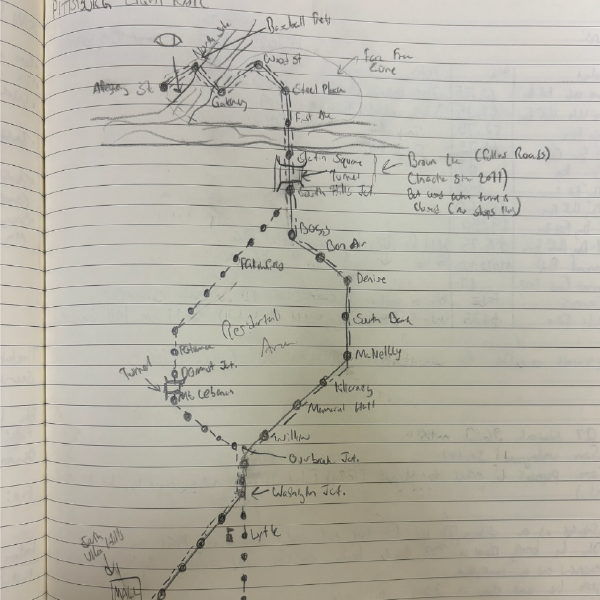 PITTSBURGH LIGHT RAIL
Baseball Park
North Side
Wood St
Fare Free
Zone
Allegheny St.
Gateway
Steel Plaza
First Ave
Station Square
Tunnel
South Hills Jct.
Brown Line
(Inactive Sin 2011)
But used when tunnel is
closed (no stops thus)
Boggs
Bon Air
Denise
South Bank
McNeilly
Killarney
Memorial Hall
Willow
Overbrook Jct.
Washington Jct.
Residential
Area
Potomac
Dormont Jct.
Tunnel
Mt Lebanon
Lytle
South
Hills
Village
MALL